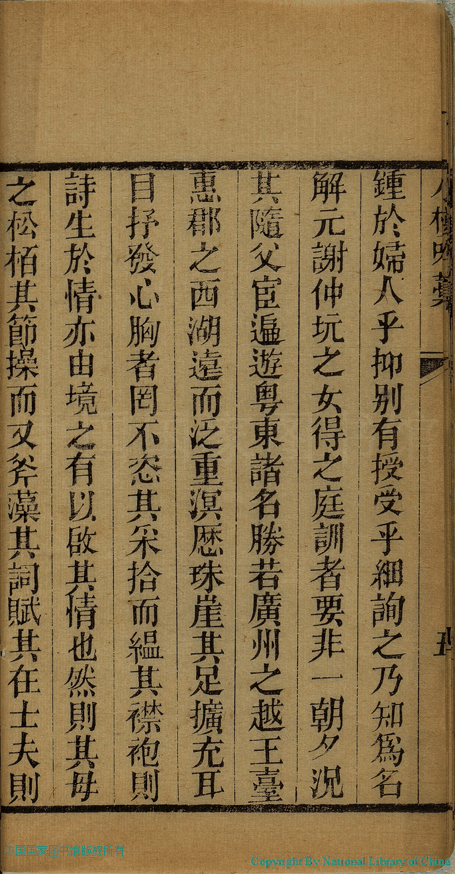 鍾於婦人乎抑别有授受乎細詢之乃知爲名
解元謝仲玩之女得之庭訓者要非一朝夕況
其隨父宦遍遊粵東諸名勝若廣州之越王臺
惠郡之西湖遠而泛重溟歷珠崖其足擴充耳
目抒發心胸者罔不恣其采拾而縕其襟袍則
詩生於情亦由境之有以啟其情也然則其母
之松栢其節操而又斧藻其詞賦其在士夫則
Copyright By National Library of China